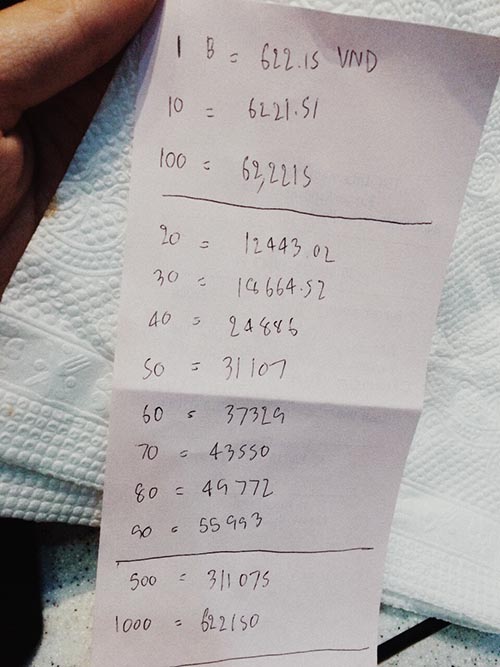 1 B = 622.15 VND
10 = 6221.51
100 = 62,2215
20 = 12443.02
30 = 18664.52
40 = 24886
50 = 31107
60 = 37329
70 = 43550
80 = 49772
90 = 55993
500 = 311075
1000 = 622150